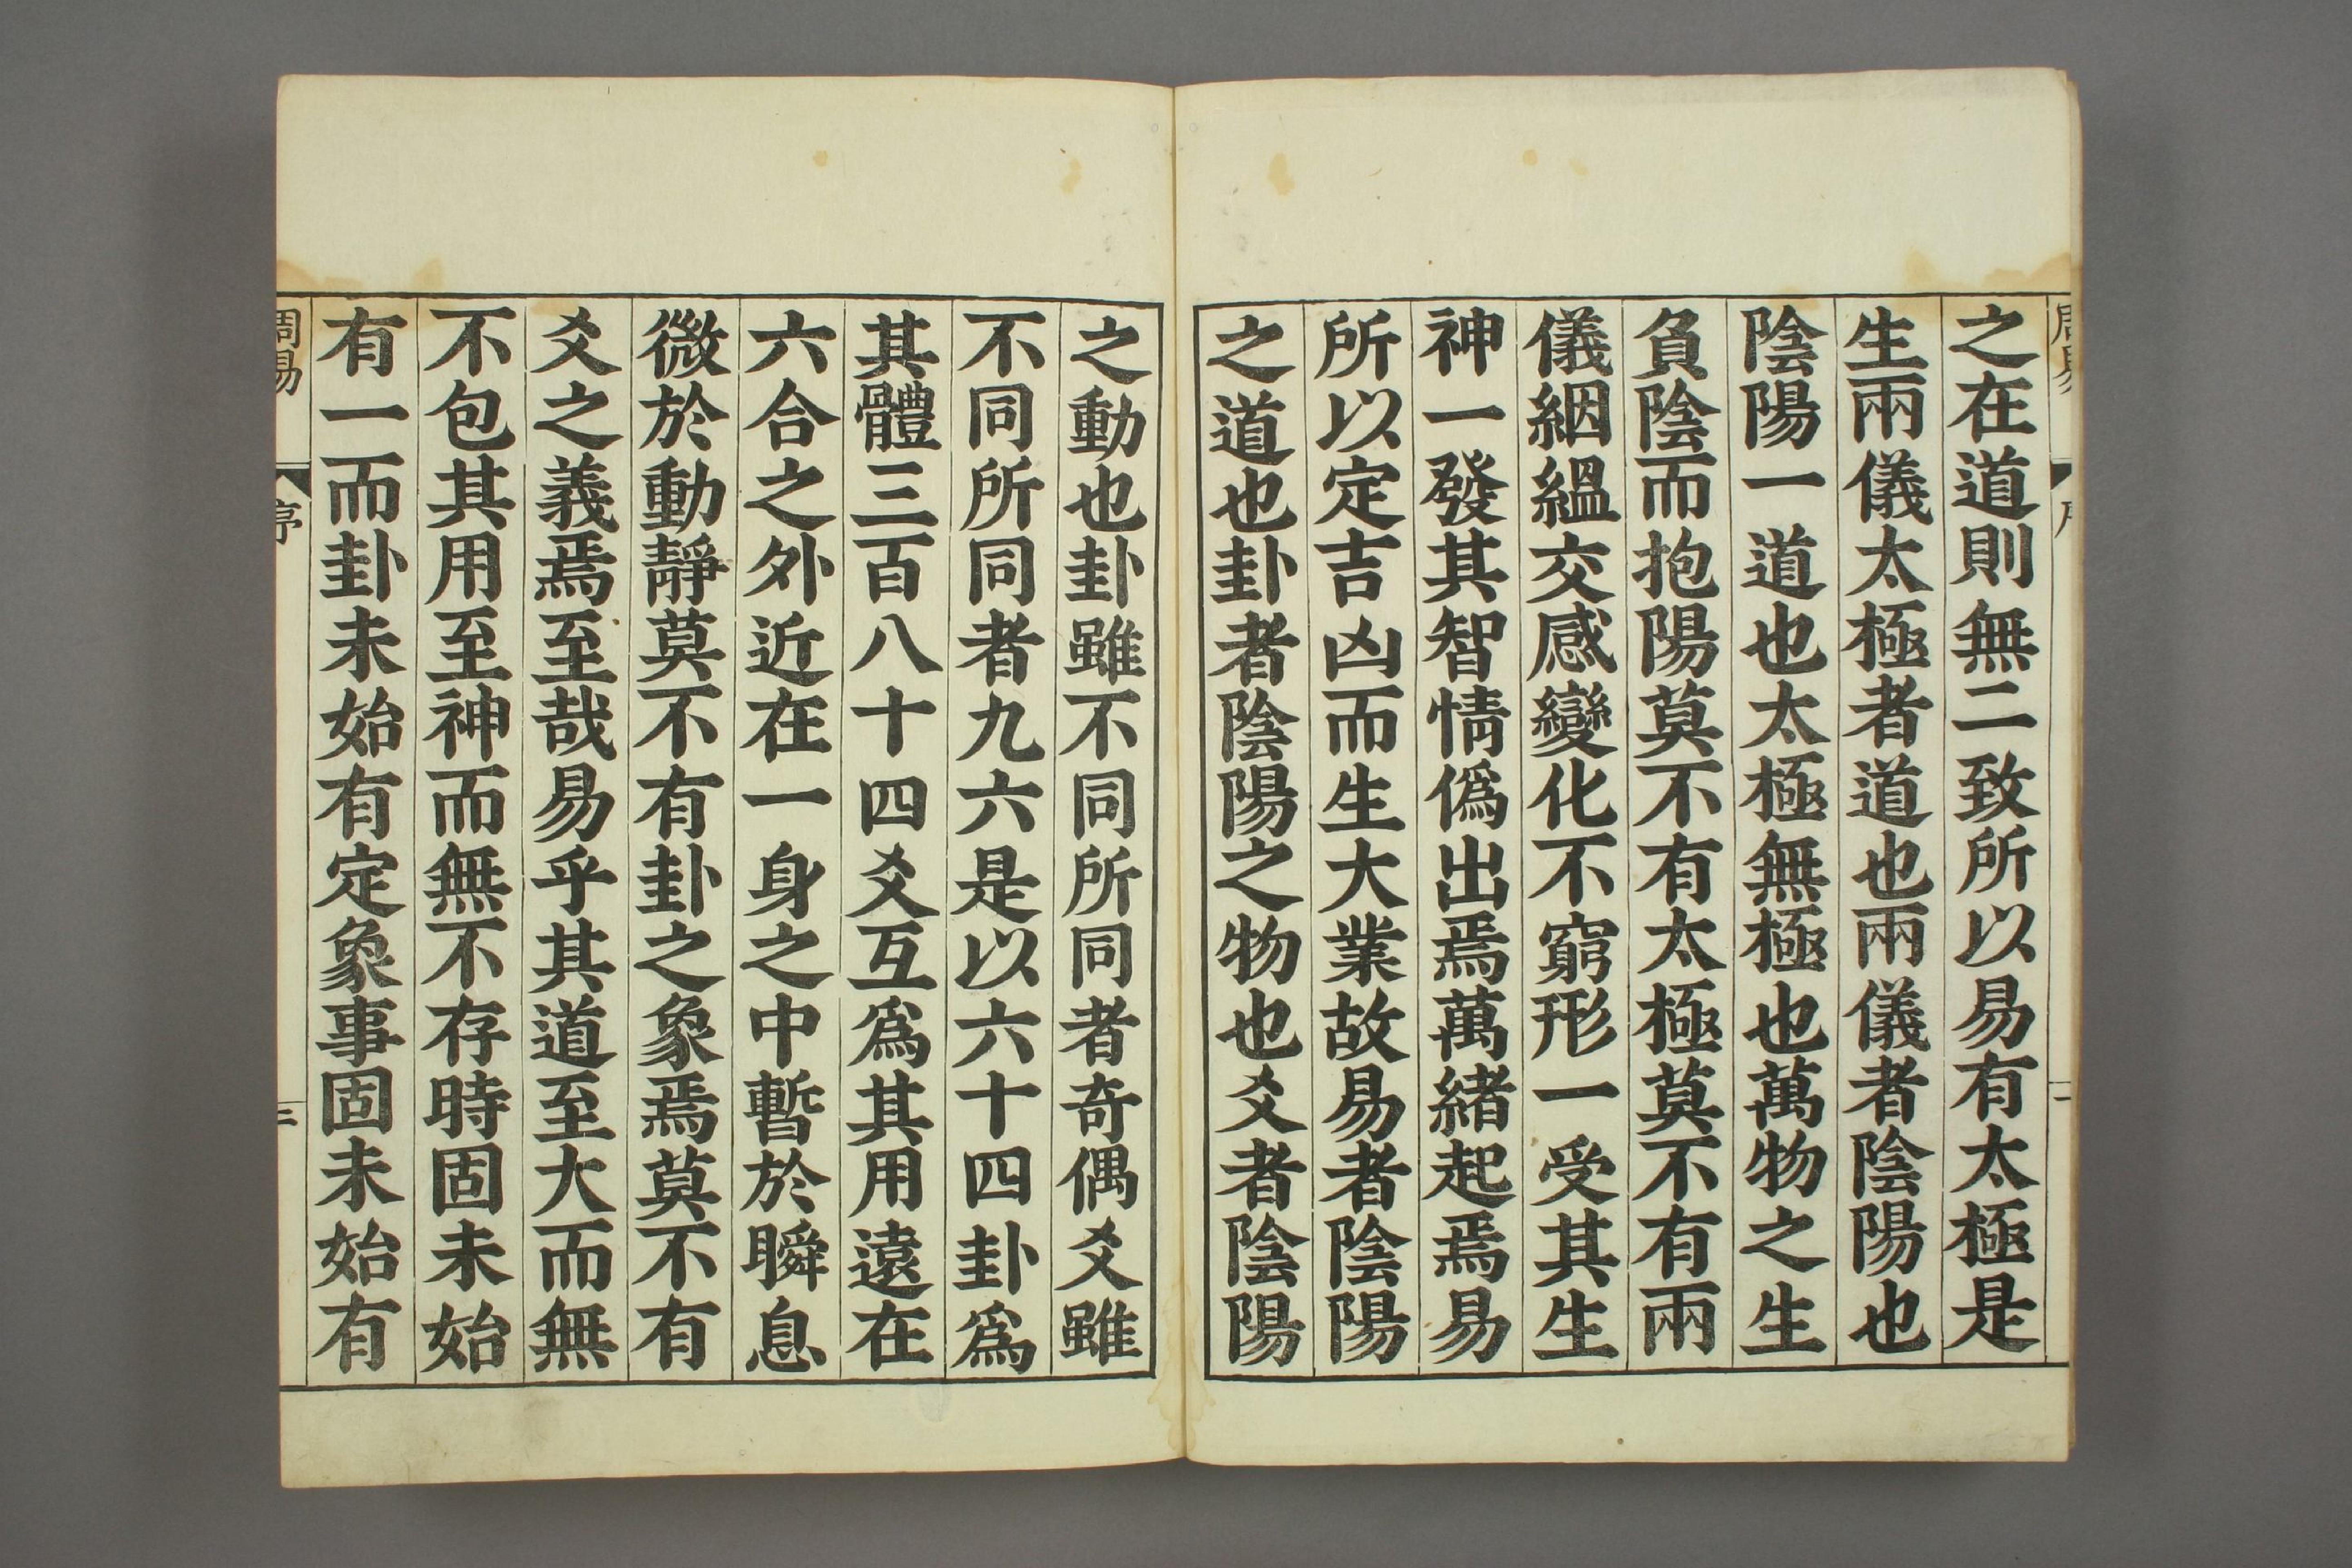 周易
序
二
之在道則無二致所以易有太極是
生兩儀太極者道也兩儀者陰陽也
陰陽一道也太極無極也萬物之生
負陰而抱陽莫不有太極莫不有兩
儀絪縕交感變化不窮形一受其生
神一發其智情僞出焉萬緖起焉易
所以定吉凶而生大業故易者陰陽
之道也卦者陰陽之物也爻者陰陽
之動也卦雖不同所同者奇偶爻雖
不同所同者九六是以六十四卦爲
其體三百八十四爻互爲其用遠在
六合之外近在一身之中暫於瞬息
微於動靜莫不有卦之象焉莫不有
爻之義焉至哉易乎其道至大而無
不包其用至神而無不存時固未始
有一而卦未始有定象事固未始有
周易
序
三